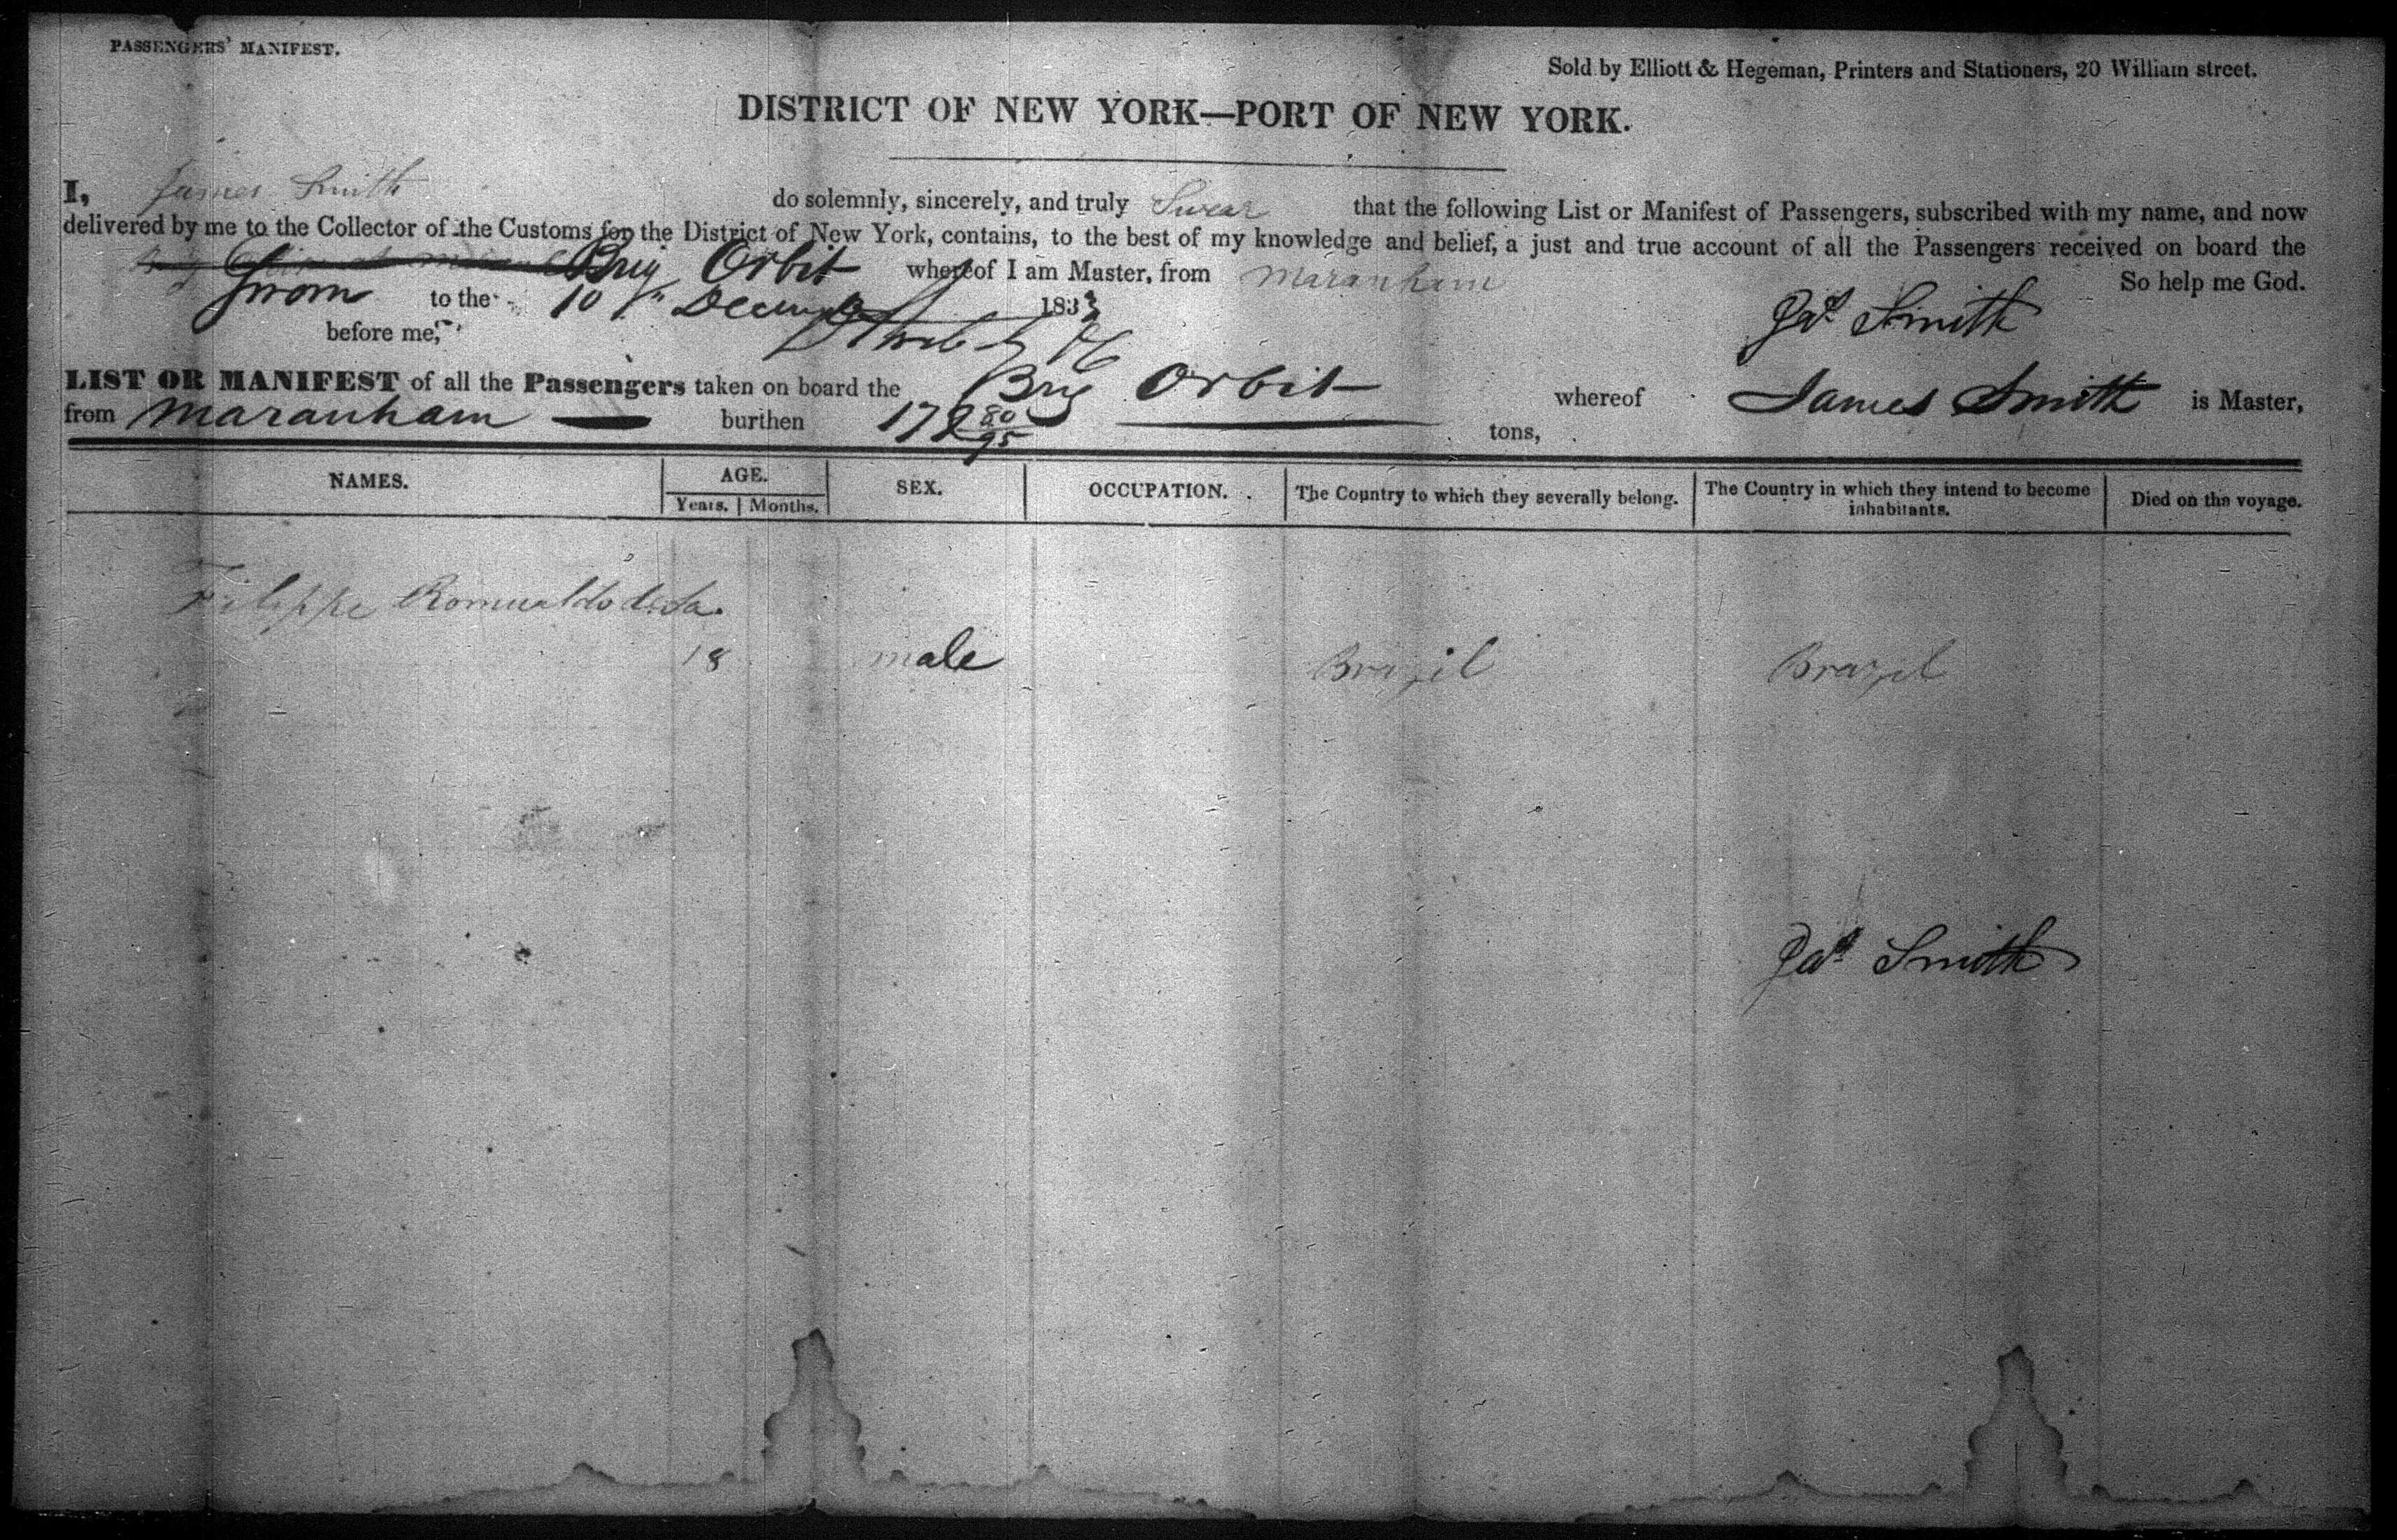 PASSENGERS' MANIFEST.
Sold by Elliott & Hegeman, Printers and Stationers, 20 William street.
DISTRICT OF NEW YORK—PORT OF NEW YORK.
I, James Smith do solemnly, sincerely, and truly Swear that the following List or Manifest of Passengers, subscribed with my name, and now
delivered by me to the Collector of the Customs for the District of New York, contains, to the best of my knowledge and belief, a just and true account of all the Passengers received on board the
Brig Orbit whereof I am Master, from Maranham So help me God.
Sworn to the 10th December 1833 Jas Smith
before me,
LIST OR MANIFEST of all the Passengers taken on board the Brig Orbit whereof James Smith is Master,
from Maranham burthen 172 80/95 tons,
NAMES. AGE. SEX. OCCUPATION. The Country to which they severally belong. The Country in which they intend to become inhabitants. Died on the voyage.
Years. Months.
Filippe Romualdo
18 male Brazil Brazil
Jas Smith